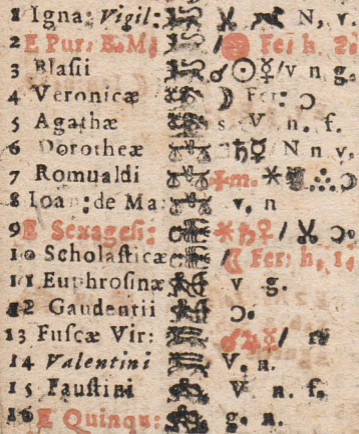 1 Igna: Vigil: N, v.
2 E Pur: B. M: / Fer: h.
3 Blasii ☌ ☉ ☿ / v n g.
4 Veronicæ ☽ Fer: Ɔ
5 Agathæ s V n. f.
6 Dorotheæ ♄ ☿ N n v,
7 Romualdi m. ✶
8 Ioan: de Ma: v, n
9 E Sexagesi: ✶ ♄ ♀ / Ɔ.
10 Scholasticæ / Fer: h,
11 Euphrosinæ v g.
12 Gaudentii Ɔ.
13 Fuscæ Vir: ☌ ♃ ☿ / n
14 Valentini V. n.
15 Faustini V n. f.
16 E Quinqu: g. n.